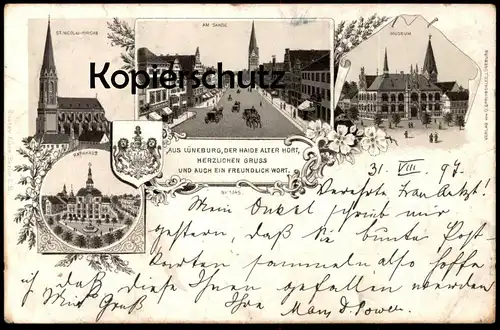 ST. NICOLAI-KIRCHE
AM SANDE
MUSEUM
Kopierschutz
RATHHAUS
AUS LÜNEBURG, DER HAIDE ALTER HORT,
HERZLICHEN GRUSS
UND AUCH EIN FREUNDLICH WORT.
31. VIII. 97.
Verehrte Frau
Mein Onkel schrieb mir
gestern, daß Sie bunte Post-
karten sammeln also hoffe
ich daß diese Ihnen gefallen werden
Mit Gruß Ihre Mary D. Power